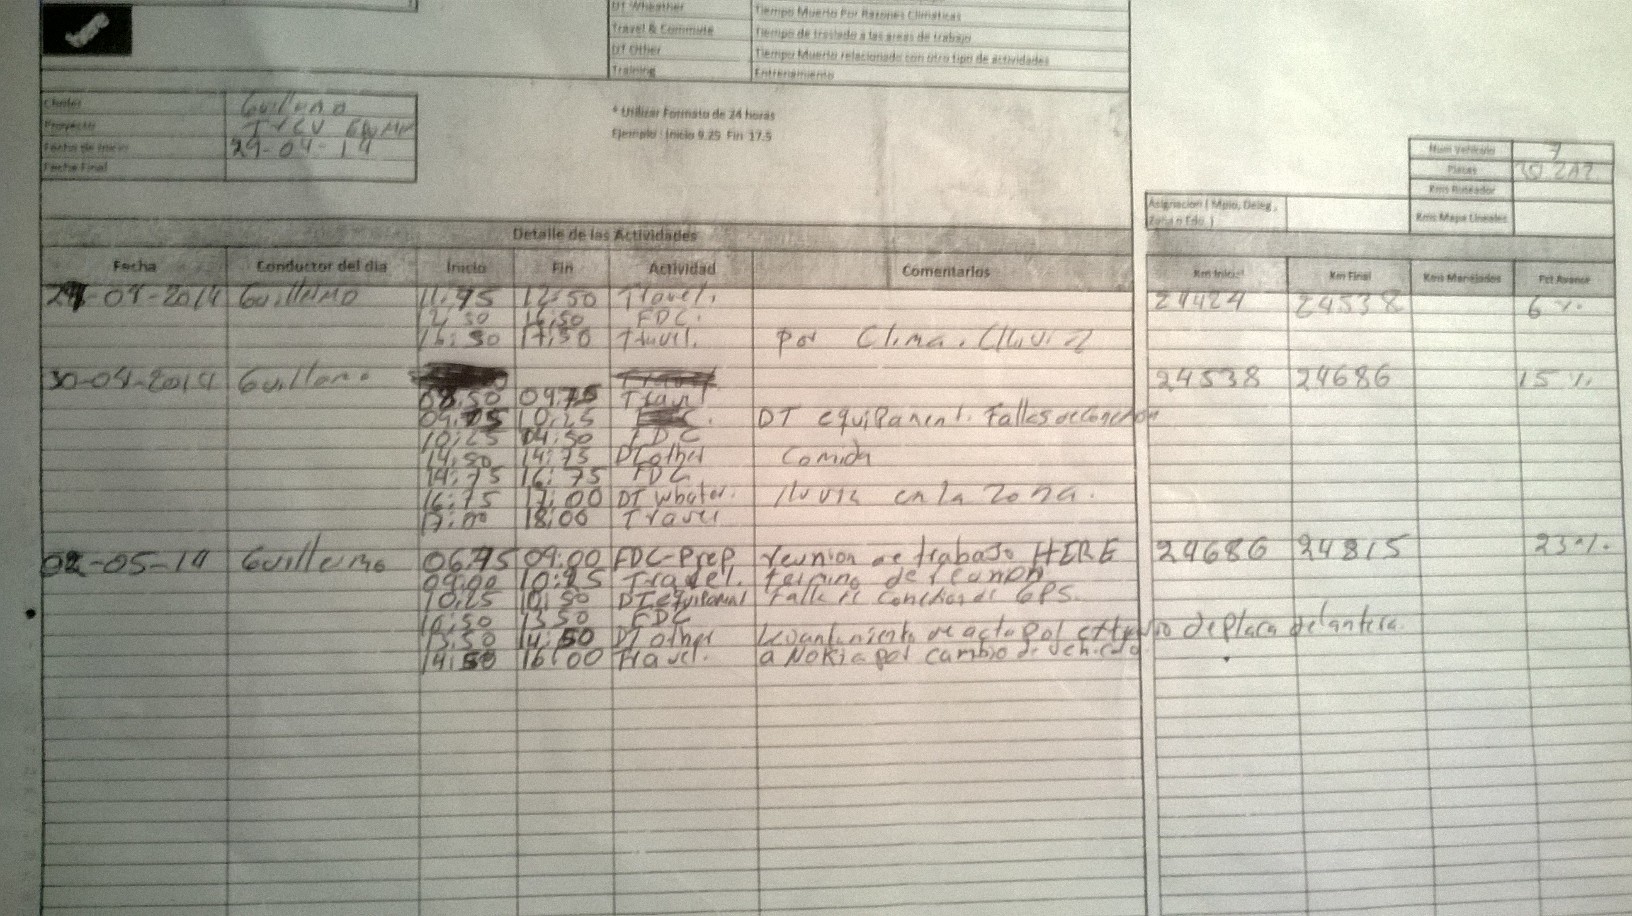 DT Wheather Tiempo Muerto Por Razones Climaticas
Travel & Commute Tiempo de traslado a las areas de trabajo
DT Other Tiempo Muerto relacionado con otro tipo de actividades
Training Entrenamiento
Chofer
Proyecto
Fecha de Inicio 29-04-14
Fecha Final
* Utilizar Formato de 24 horas
Ejemplo : Inicio 9.25 Fin 17.5
Num Vehiculo 7
Placas
Kms Ruteador
Asignacion ( Mpio, Deleg , Kms Mapa Lineales
Zona o Edo )
Detalle de las Actividades
Fecha Conductor del dia Inicio Fin Actividad Comentarios Km Inicial Km Final Kms Manejados Pct Avance
29-04-2014 Guillermo 12:50 Travel. 24424 24538 6 %
16:50 FDC.
17:50 Travel. Por Clima. Lluvia
30-04-2014 Guillermo 24538 24686 15 %
08:50 09:75 Travel
10:25 DT equipament. Fallas de conexion
10:25 04:50 FDC
14:50 14:75 DT other Comida
14:75 16:75 FDC
16:75 17:00 DT whater. lluvia en la zona.
17:00 18:00 Travel
02-05-14 Guillermo 09:00 FDC-Prep. reunion de trabajo HERE 24686 24815 23%.
09:00 Travel. termino de reunion
10:25 10:50 DT equipament GPS.
10:50 13:50 FDC
13:50 14:50 DT other Levantamiento de acta por de placa delantera.
14:50 16:00 Travel. a Nokia por cambio de vehiculo.